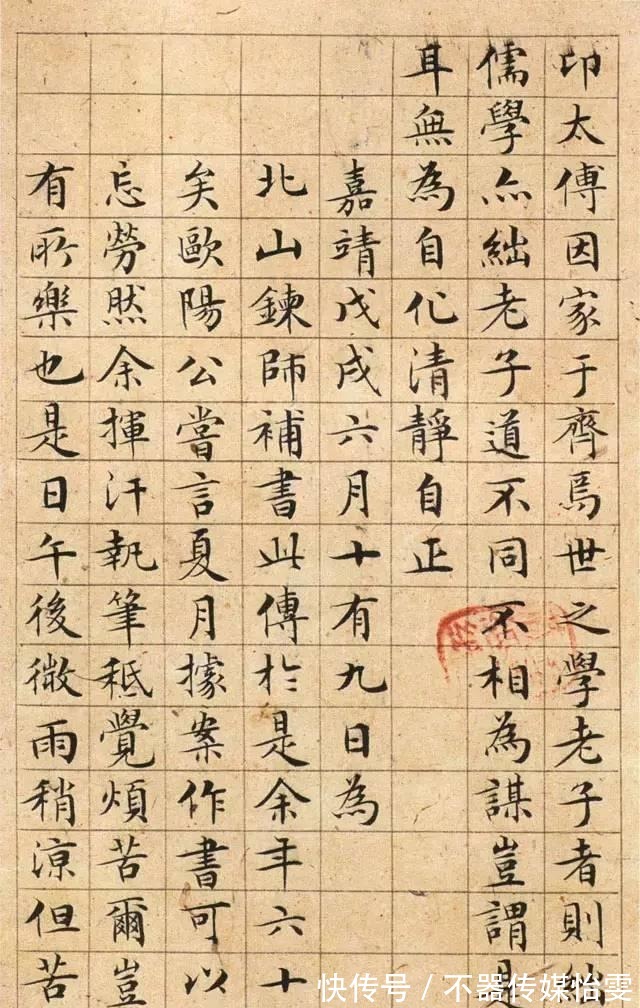 印太傅因家于齊焉世之學老子者則絀
儒學亦絀老子道不同不相為謀豈謂是
耳無為自化清靜自正
嘉靖戊戌六月十有九日為
北山鍊師補書此傳於是余年六十
矣歐陽公嘗言夏月據案作書可以
忘勞然余揮汗執筆秪覺煩苦爾豈
有所樂也是日午後微雨稍涼但苦
快传号 / 不器传媒怡雯